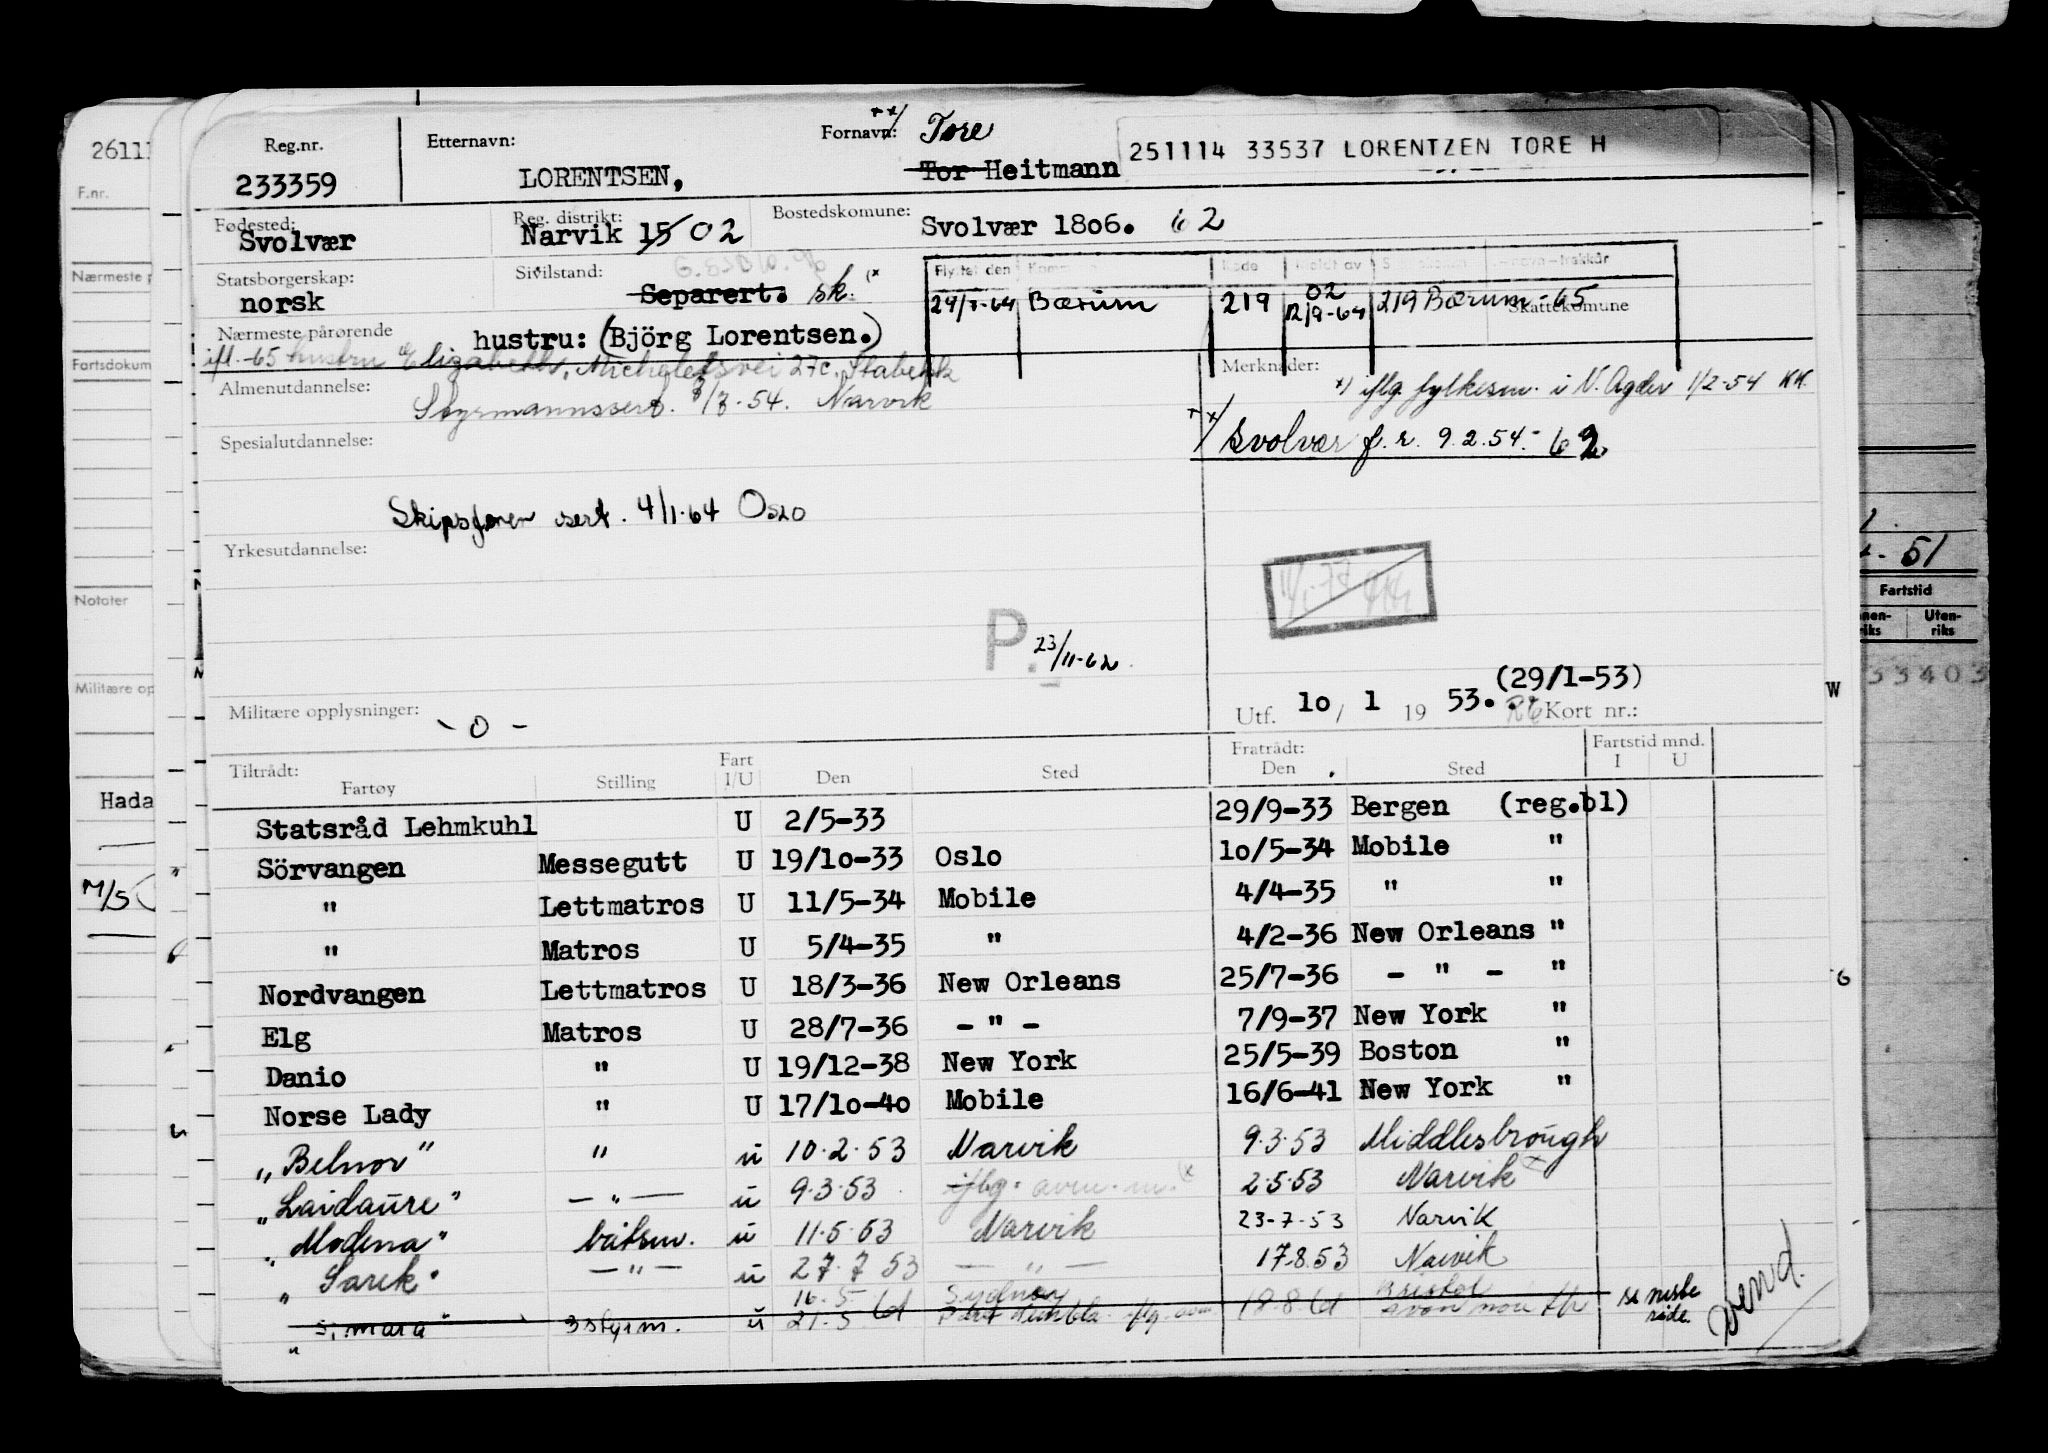 Reg.nr. Etternavn: Fornavn: Tore
233359 LORENTSEN, Tor Heitmann 251114 33537 LORENTZEN TORE H
Fødested: Svolvær Reg. distrikt: Narvik 15 02 Bostedskomune: Svolvær 1806. 62
Statsborgerskap: norsk Sivilstand: Separert. sk.
Flyttet den Kode Meldt av
24/7-64 Bærum 219 02 12/9-64 219 Bærum -65 Skattekomune
Nærmeste pårørende hustru: (Björg Lorentsen.)
ifl. -65 hustru Elizabeth, Micheletsvei 27c, Stabekk
Merknader:
x) iflg fylkesm. i V. Agder 1/2-54 KK.
Almenutdannelse: Styrmannssert. 3/7-54. Narvik
xx/ Svolvær f. r. 9.2.54.- 62.
Spesialutdannelse:
Skipsfører sert. 4/1-64 Oslo
Yrkesutdannelse:
P. 23/11-62
(29/1-53)
Militære opplysninger: - 0 -
Utf. 10 / 1 19 53. Kort nr.:
Tiltrådt: Fratrådt: Fartstid mnd.
Fartøy Stilling Fart I/U Den Sted Den Sted I U
Statsråd Lehmkuhl U 2/5-33 29/9-33 Bergen (reg.bl)
Sörvangen Messegutt U 19/10-33 Oslo 10/5-34 Mobile "
" Lettmatros U 11/5-34 Mobile 4/4-35 " "
" Matros U 5/4-35 " 4/2-36 New Orleans "
Nordvangen Lettmatros U 18/3-36 New Orleans 25/7-36 - " - "
Elg Matros U 28/7-36 - " - 7/9-37 New York "
Danio " U 19/12-38 New York 25/5-39 Boston "
Norse Lady " U 17/10-40 Mobile 16/6-41 New York "
„Belnor" " u 10.2.53 Narvik 9.3.53 Middlesbrough
„Laidaure" - " - u 9.3.53 iflg. avm. m. 2.5.53 Narvik
„Modena" båtsm. u 11.5.53 Narvik 23-7-53 Narvik
„Sarek" - " - u 27.7 53 - " - 17.8.53 Narvik
16.5 Sydney Bristol
3 styrm. u 21.5 61 Port Kembla 18.8 61 Avonmouth se neste side.
26111
F.nr.
Fartsdokum
Notater
Militære op
Hada
M/S
51
Fartstid
Uten-
riks
33403
W
6